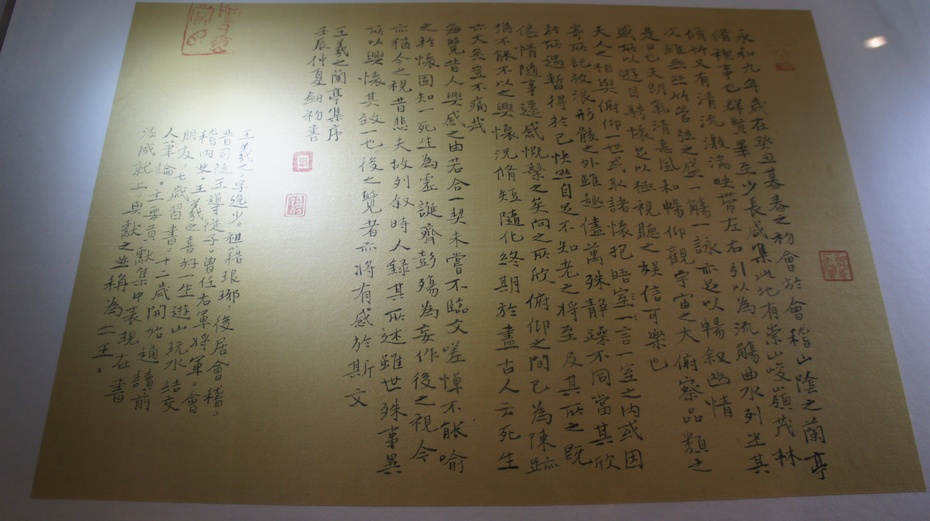 永和九年歲在癸丑暮春之初會於會稽山陰之蘭亭
脩稧事也群賢畢至少長咸集此地有崇山峻嶺茂林
脩竹又有清流激湍映帶左右引以為流觴曲水列坐其
次雖無絲竹管弦之盛一觴一詠亦足以暢敘幽情
是日也天朗氣清惠風和暢仰觀宇宙之大俯察品類之
盛所以遊目騁懷足以極視聽之娛信可樂也
夫人之相與俯仰一世或取諸懷抱晤言一室之內或因
寄所託放浪形骸之外雖趣舍萬殊靜躁不同當其欣
於所遇暫得於己快然自足不知老之將至及其所之既
倦情隨事遷感慨繫之矣向之所欣俯仰之間已為陳跡
猶不能不以之興懷況脩短隨化終期於盡古人云死生
亦大矣豈不痛哉
每覽昔人興感之由若合一契未嘗不臨文嗟悼不能喻
之於懷固知一死生為虛誕齊彭殤為妄作後之視今
亦猶今之視昔悲夫故列敘時人錄其所述雖世殊事異
所以興懷其致一也後之覽者亦將有感於斯文
王羲之蘭亭集序
壬辰仲夏 書
王羲之，字逸少。祖籍琅琊，後居會稽。
晉司徒王導從子。曾任右軍將軍，會
稽內史。王羲之喜好一生遊山玩水結交
朋友。七歲習書，十二歲開始通讀前
人筆論。主要貢獻集中表現在書
法成就上，與獻之並稱為二王。